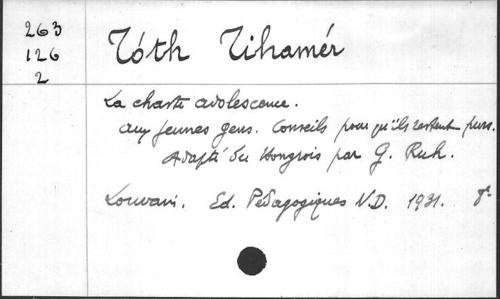 263
126
2
Tóth Tihamér
La chaste adolescence.
Aux jeunes gens. Conseils pour qu'ils restent purs.
Adapté du Hongrois par G. Ruh.
Louvain. Ed. Pédagogiques N.D. 1931.